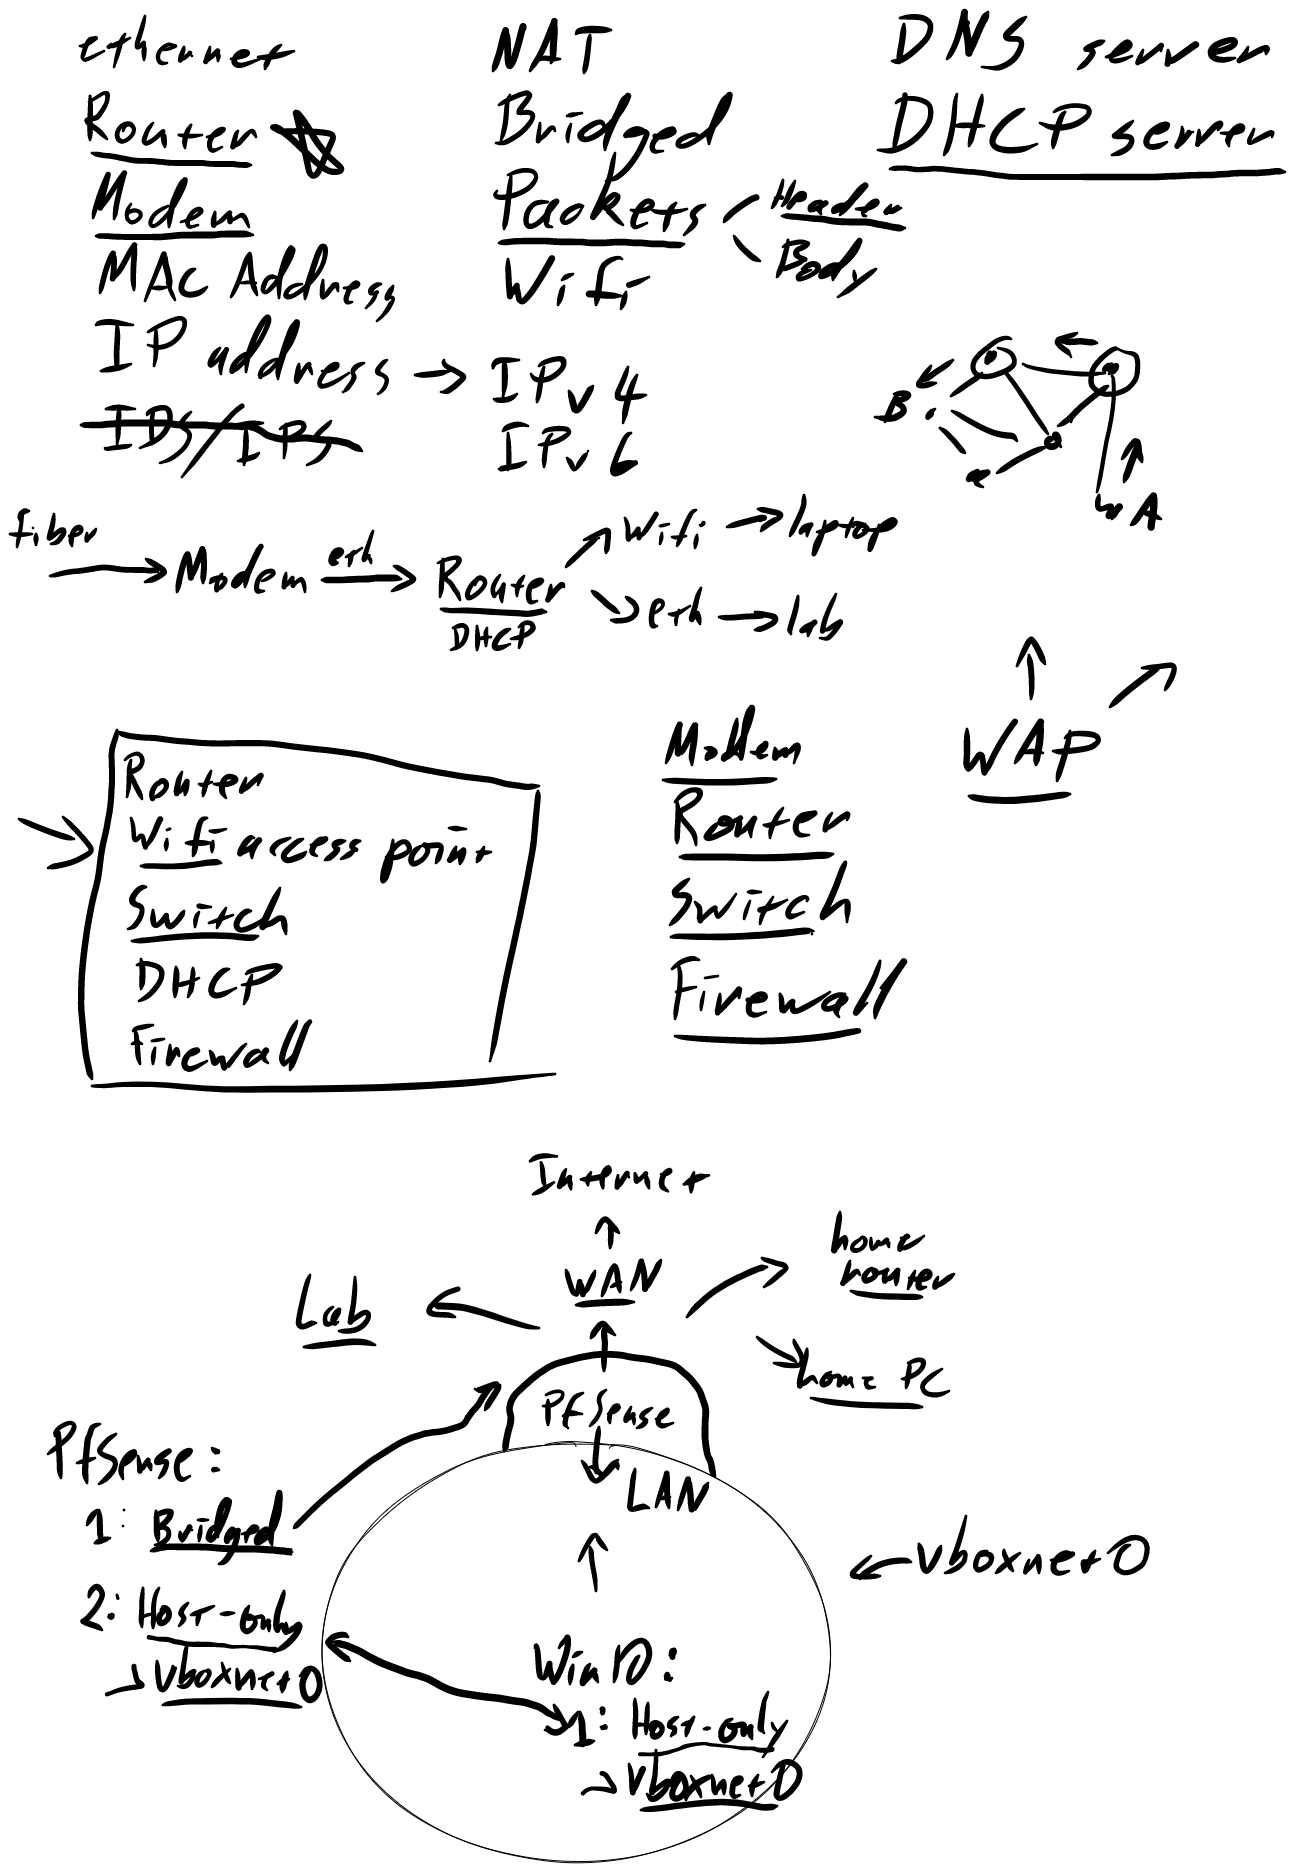 ethernet
Router
Modem
MAC Address
IP address
IDS/IPS
NAT
Bridged
Packets
Header
Body
Wifi
IPv4
IPv6
DNS server
DHCP server
B
A
fiber
Modem
eth
Router
DHCP
Wifi
laptop
eth
lab
WAP
Router
Wifi access point
Switch
DHCP
Firewall
Modem
Router
Switch
Firewall
Internet
WAN
Lab
home
router
home PC
PfSense
LAN
PfSense:
1: Bridged
2: Host-only
vboxnet0
vboxnet0
Win10:
1: Host-only
vboxnet0